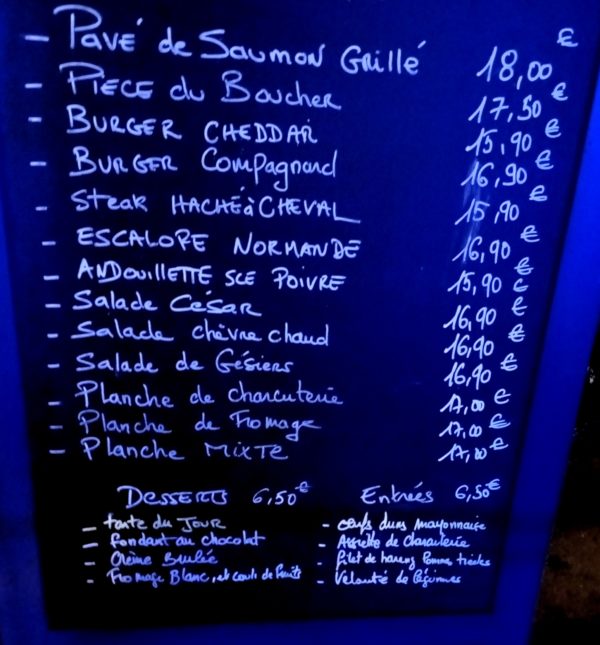 - Pavé de Saumon Grillé 18,00 €
- Pièce du Boucher 17,50 €
- Burger Cheddar 15,90 €
- Burger Compagnard 16,90 €
- Steak Haché à Cheval 15,90 €
- Escalope Normande 16,90 €
- Andouillette sce Poivre 15,90 €
- Salade César 16,90 €
- Salade chèvre chaud 16,90 €
- Salade de Gésiers 16,90 €
- Planche de charcuterie 17,00 €
- Planche de Fromage 17,00 €
- Planche Mixte 17,00 €
Desserts 6,50 €
- tarte du Jour
- fondant au chocolat
- Crème Brulée
- Fromage Blanc, et couli de fruits
Entrées 6,50 €
- œufs durs mayonnaise
- Assiette de Charcuterie
- Filet de hareng Pomme tièdes
- Velouté de Légumes